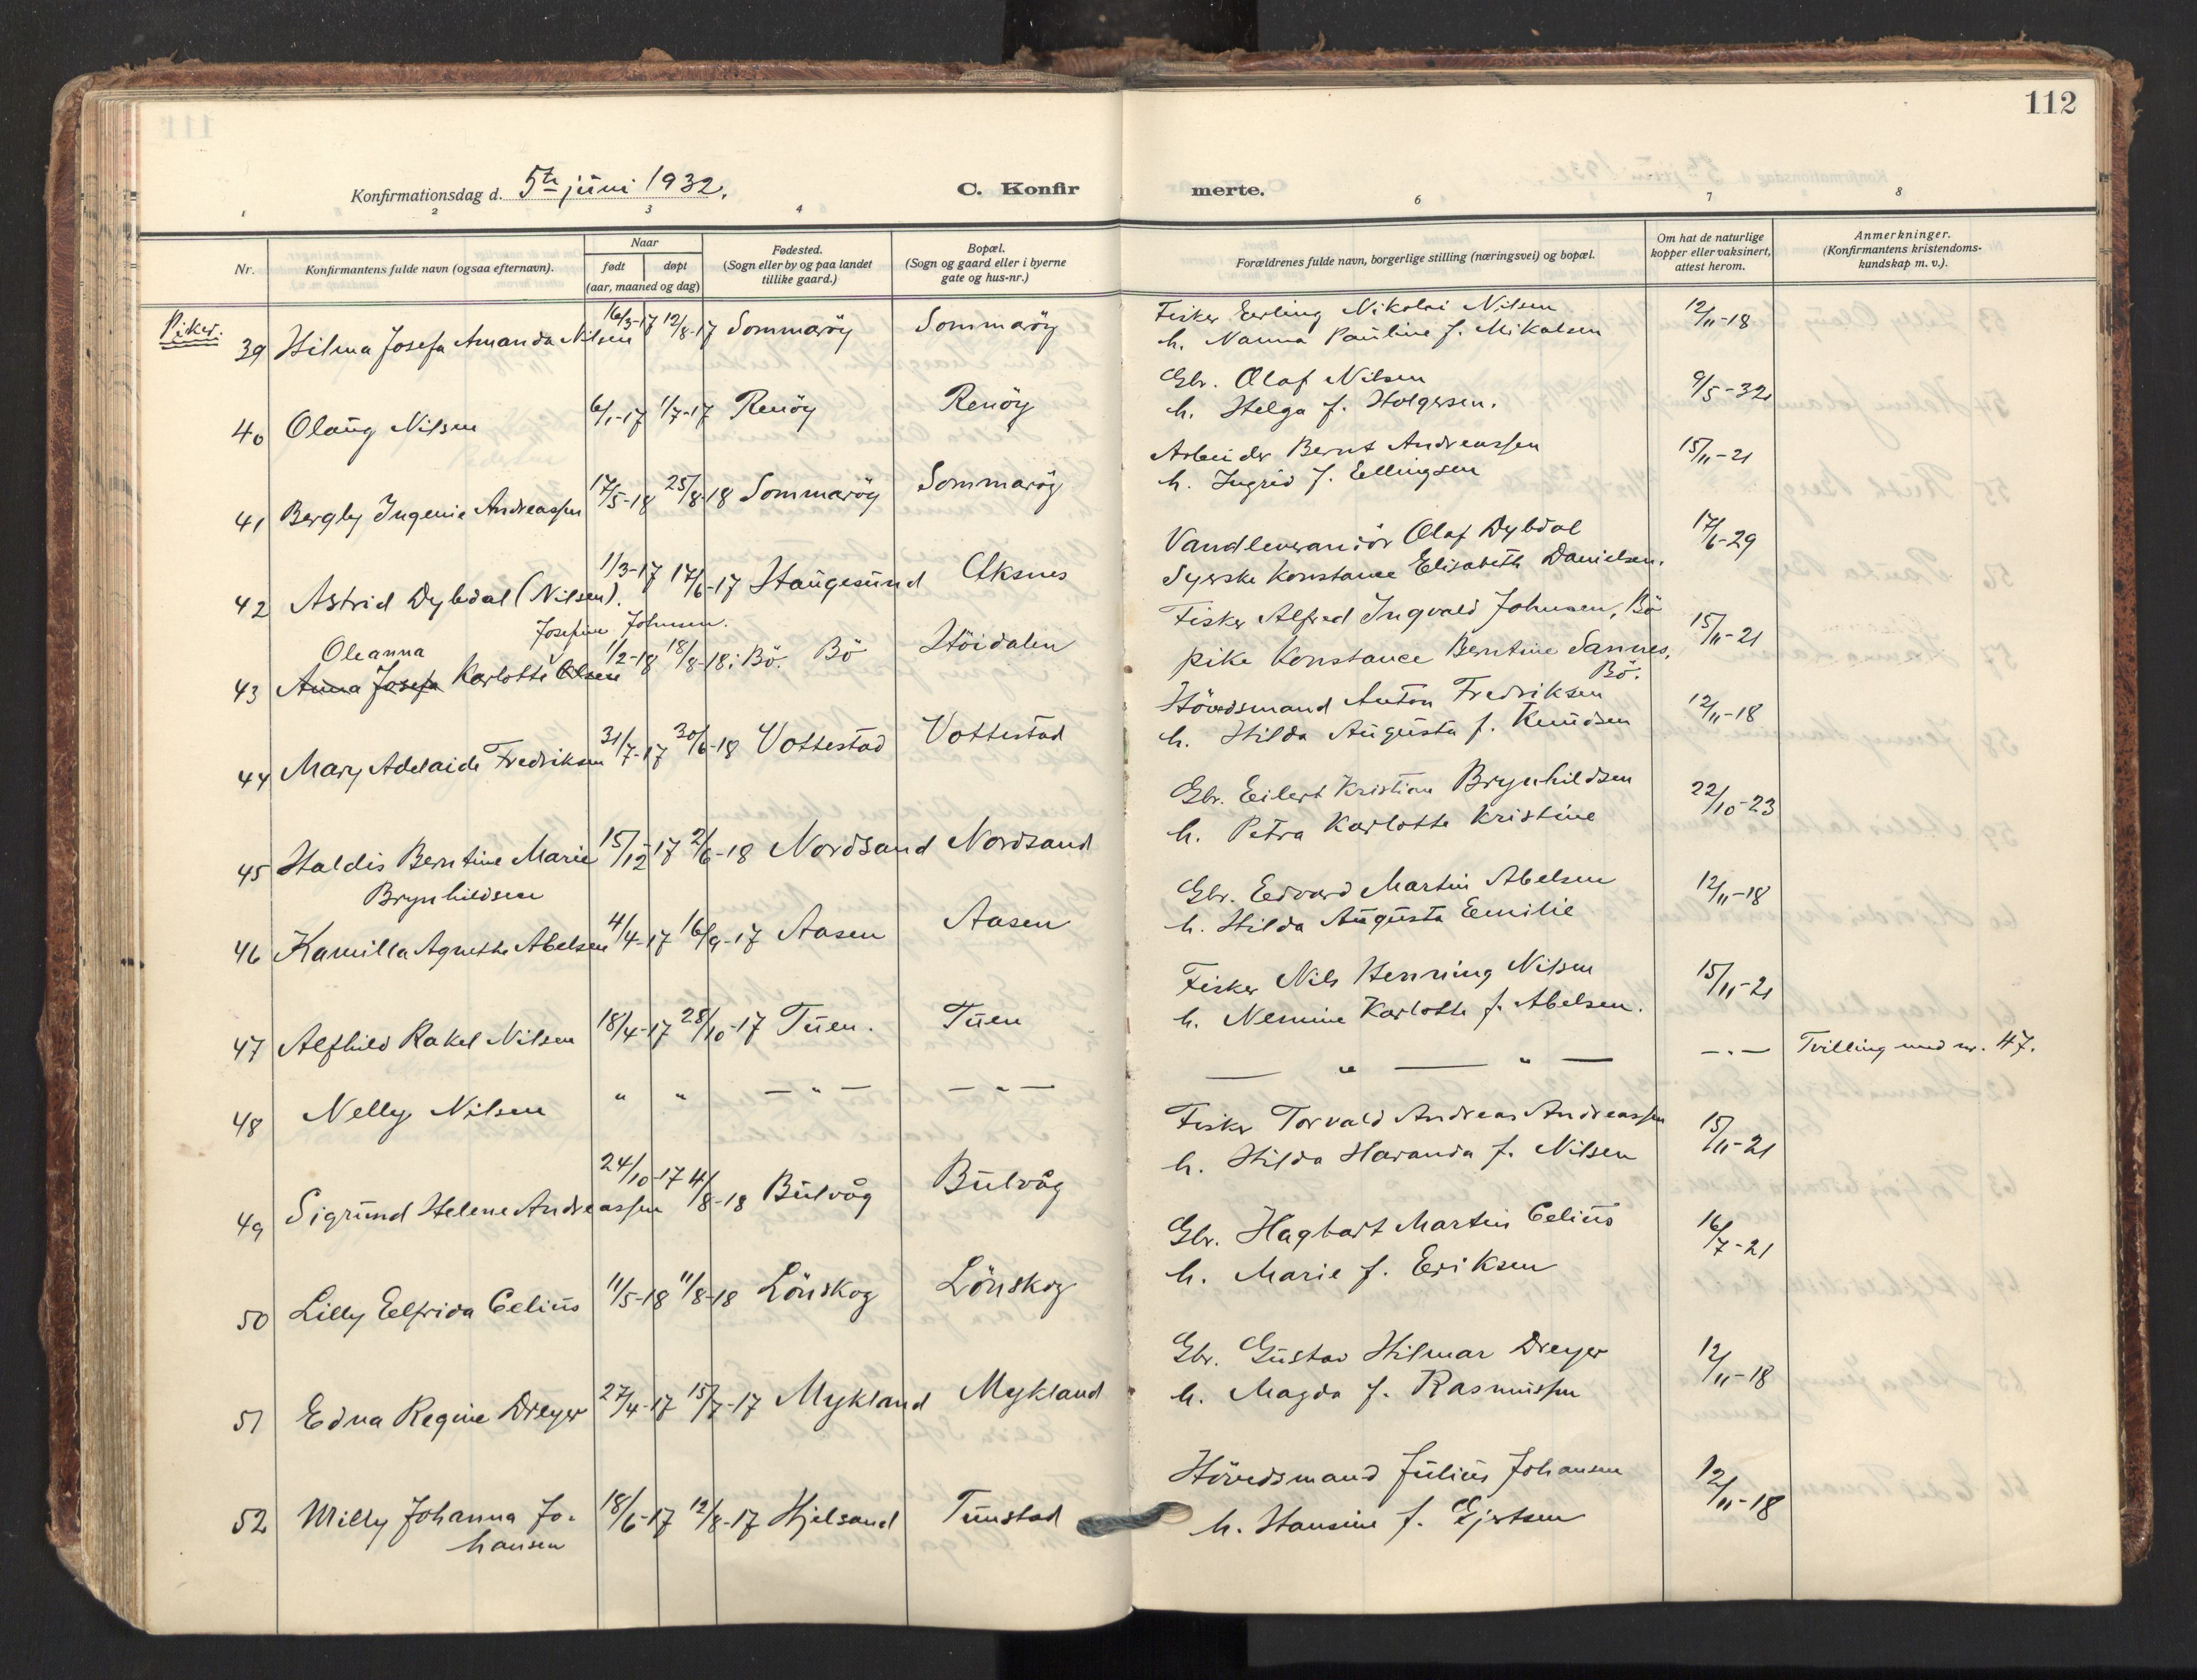 112
Konfirmationsdag d. 5te juni 1932.
C. Konfir
merte.
1 2 3 4 6 7 8
Nr.
Konfirmantens fulde navn (ogsaa efternavn).
Naar
født døpt
(aar, maaned og dag)
Fødested.
(Sogn eller by og paa landet
tillike gaard.)
Bopæl.
(Sogn og gaard eller i byerne
gate og hus-nr.)
Forældrenes fulde navn, borgerlige stilling (næringsvei) og bopæl.
Om hat de naturlige
kopper eller vaksinert,
attest herom.
Anmerkninger.
(Konfirmantens kristendoms-
kundskap m. v.).
Piker.
39 Hilma Josefa Amanda Nilsen 16/3-17 12/8-17 Sommarøy Sommarøy
Fisker Erling Nikolai Nilsen
h. Nanna Pauline f. Mikalsen
12/11-18
40 Olaug Nilsen 6/1-17 1/7-17 Renöy Renöy
Gbr. Olaf Nilsen
h. Helga f. Holgersen.
9/5-32
41 Bergly Ingenie Andreassen 17/5-18 25/8-18 Sommaröy Sommaröy
Arbeider Bernt Andreassen
h. Ingrid f. Ellingsen
15/11-21
42 Astrid Dybdal (Nilsen). 1/3-17 17/6-17 Haugesund Aksnes
Vandleverandör Olaf Dybdal
Syerske Konstance Elisabeth Danielsen.
17/6-29
Josefine Johnsen.
Oleanna
43 Anna Josefa Karlotte Olsen 1/2-18 18/8-18 i Bö. Bö Höidalen
Fisker Alfred Ingvald Johnsen, Bö
pike Konstance Berntine Sannes,
Bö.
15/11-21
44 Mary Adelaide Fredriksen 31/7-17 30/6-18 Vottestad Vottestad
Hövedsmand Anton Fredriksen
h. Hilda Augusta f. Knudsen
12/11-18
45 Haldis Berntine Marie 15/12-17 2/6-18 Nordsand Nordsand
Brynhildsen
Gbr. Eilert Kristian Brynhildsen
h. Petra Karlotte Kristine
22/10-23
46 Kamilla Agnethe Abelsen 4/4-17 16/9-17 Aasen Aasen
Gbr. Edvard Martin Abelsen
h. Hilda Augusta Emilie
12/11-18
47 Alfhild Rakel Nilsen 18/4-17 28/10-17 Tuen. Tuen
Fisker Nils Henning Nilsen
h. Nemine Karlotte f. Abelsen.
15/11-21
48 Nelly Nilsen " " — " — — " —
— " — " —
— " — Tvilling med nr. 47.
49 Sigrund Helene Andreassen 24/10-17 4/8-18 Bulvåg Bulvåg
Fisker Torvald Andreas Andreassen
h. Hilda Haranda f. Nilsen
15/11-21
50 Lilly Elfrida Celius 11/5-18 11/8-18 Lönskog Lönskog
Gbr. Hagbart Martin Celius
h. Marie f. Eriksen
16/7-21
51 Edna Regine Dreyer 27/4-17 15/7-17 Mykland Mykland
Gbr. Gustav Hilmar Dreyer
h. Magda f. Rasmussen
12/11-18
52 Milly Johanna Jo- 18/6-17 12/8-17 Hjelsand Tunstad
hansen
Hövedsmand Julius Johansen
h. Hansine f. Ejertsen
12/11-18